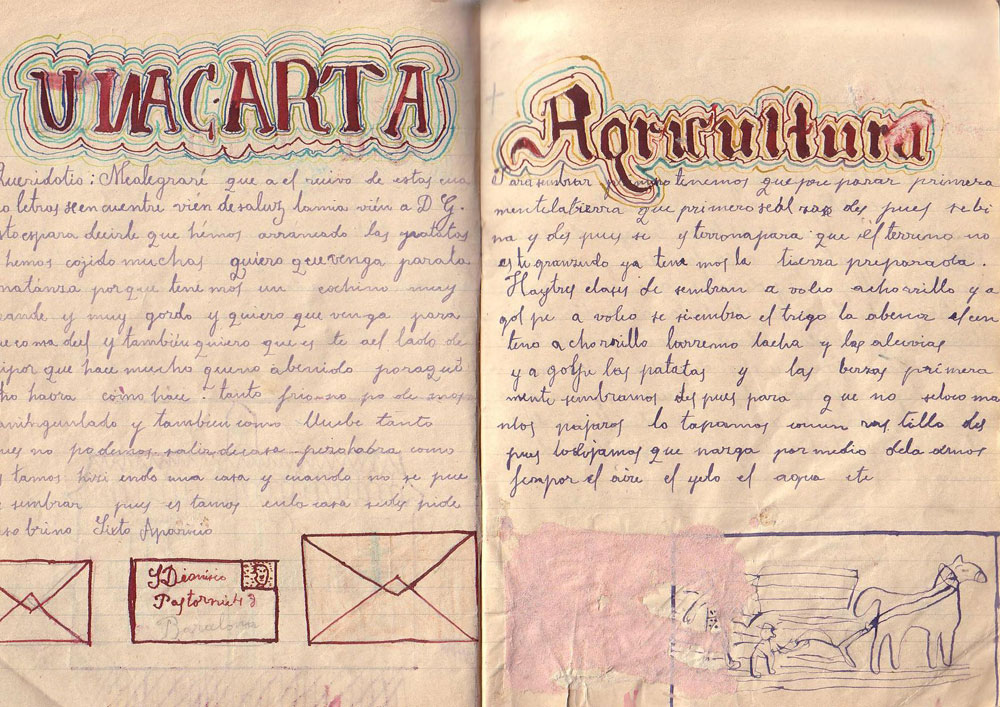 UNA CARTA
Queridotio: Mealegraré que a el recivo de estas cua
o letras seencuentre vien desaluz lamia vién a D G.
stoespara decirle que hemos arrancado las patatas
hemos cojido muchas quiero quevenga parala
matánza porque tene mos un cochino muy
rande y muy gordo y quiero que venga para
ue coma del y tambiénquiero que es te ael lado de
por que hace mucho queno abenido poraquí
ho habra como hace tanto frio no po de mos
ningunlado y tambien como lluebe tanto
ues no podemos salir decasa pero habra como
s tamos hizi endo una casa y cuando no se pue
e sembrar pues es tamos enla casa
sobrino Sixto Aparicio
S Dionisio
Pastor
Barcelona
Agricultura
Para sembrar tenemos que pre parar primera
mentelatierra que primero des pues se bi
na y des pues se y terrona para que el terreno no
este ya tene mos la tierra preparada.
Haytres clases de sembrar a voleo achorrillo y a
golpe a voleo se siembra el trigo la abena el cen
teno a chorrillo laremo lacha y las aluvias
y a golpe las patatas y las berzas primera
mente sembramos des pues para que no seloco ma
nlos pajaros lo tapamos conun ras tillo des
pues lodijamos que nazga por medio dela
por el áire el yelo el aqua ete